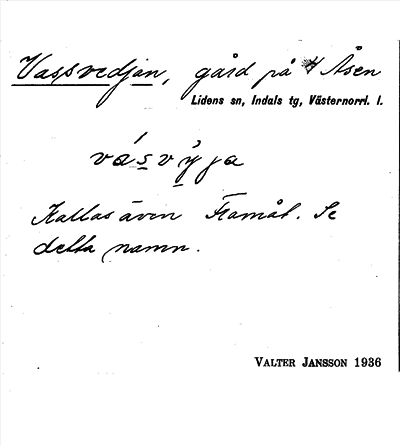 Vassvedjan, gård på Åsen
Lidens sn, Indals tg, Västernorrl. l.
Kallas även Framåt. Se
detta namn.
VALTER JANSSON 1936